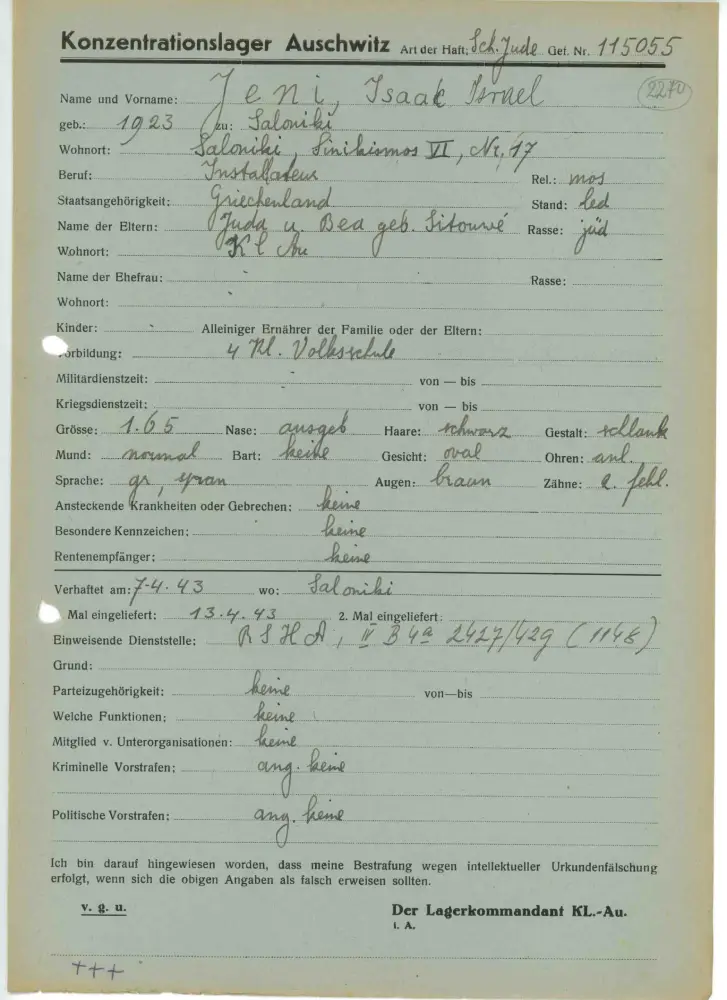 Konzentrationslager Auschwitz Art der Haft: Sch. Jude Gef. Nr. 115055
Name und Vorname: Jeni, Isaak Israel 2270
geb.: 1923 zu: Saloniki
Wohnort: Saloniki, Sinikismos VI, Nr. 17
Beruf: Installateur Rel.: mos
Staatsangehörigkeit: Griechenland Stand: led
Name der Eltern: Juda u. Bea geb. Sitouwé Rasse: jüd
Wohnort: Kl Au
Name der Ehefrau: - Rasse:
Wohnort: -
Kinder: - Alleiniger Ernährer der Familie oder der Eltern:
orbildung: 4 Kl. Volksschule
Militärdienstzeit: - von — bis
Kriegsdienstzeit: - von — bis
Grösse: 1.65 Nase: ausgeb Haare: schwarz Gestalt: schlank
Mund: normal Bart: keine Gesicht: oval Ohren: anl.
Sprache: gr, span Augen: braun Zähne: 2. fehl.
Ansteckende Krankheiten oder Gebrechen: keine
Besondere Kennzeichen: keine
Rentenempfänger: keine
Verhaftet am: 7-4. 43 wo: Saloniki
Mal eingeliefert: 13.4.43 2. Mal eingeliefert:
Einweisende Dienststelle: RSHA, IV B 4a 2427/42g (1148)
Grund:
Parteizugehörigkeit: keine von—bis
Welche Funktionen: keine
Mitglied v. Unterorganisationen: keine
Kriminelle Vorstrafen: ang. keine
Politische Vorstrafen: ang. keine
Ich bin darauf hingewiesen worden, dass meine Bestrafung wegen intellektueller Urkundenfälschung
erfolgt, wenn sich die obigen Angaben als falsch erweisen sollten.
v. g. u. Der Lagerkommandant KL.-Au.
i. A.
+++